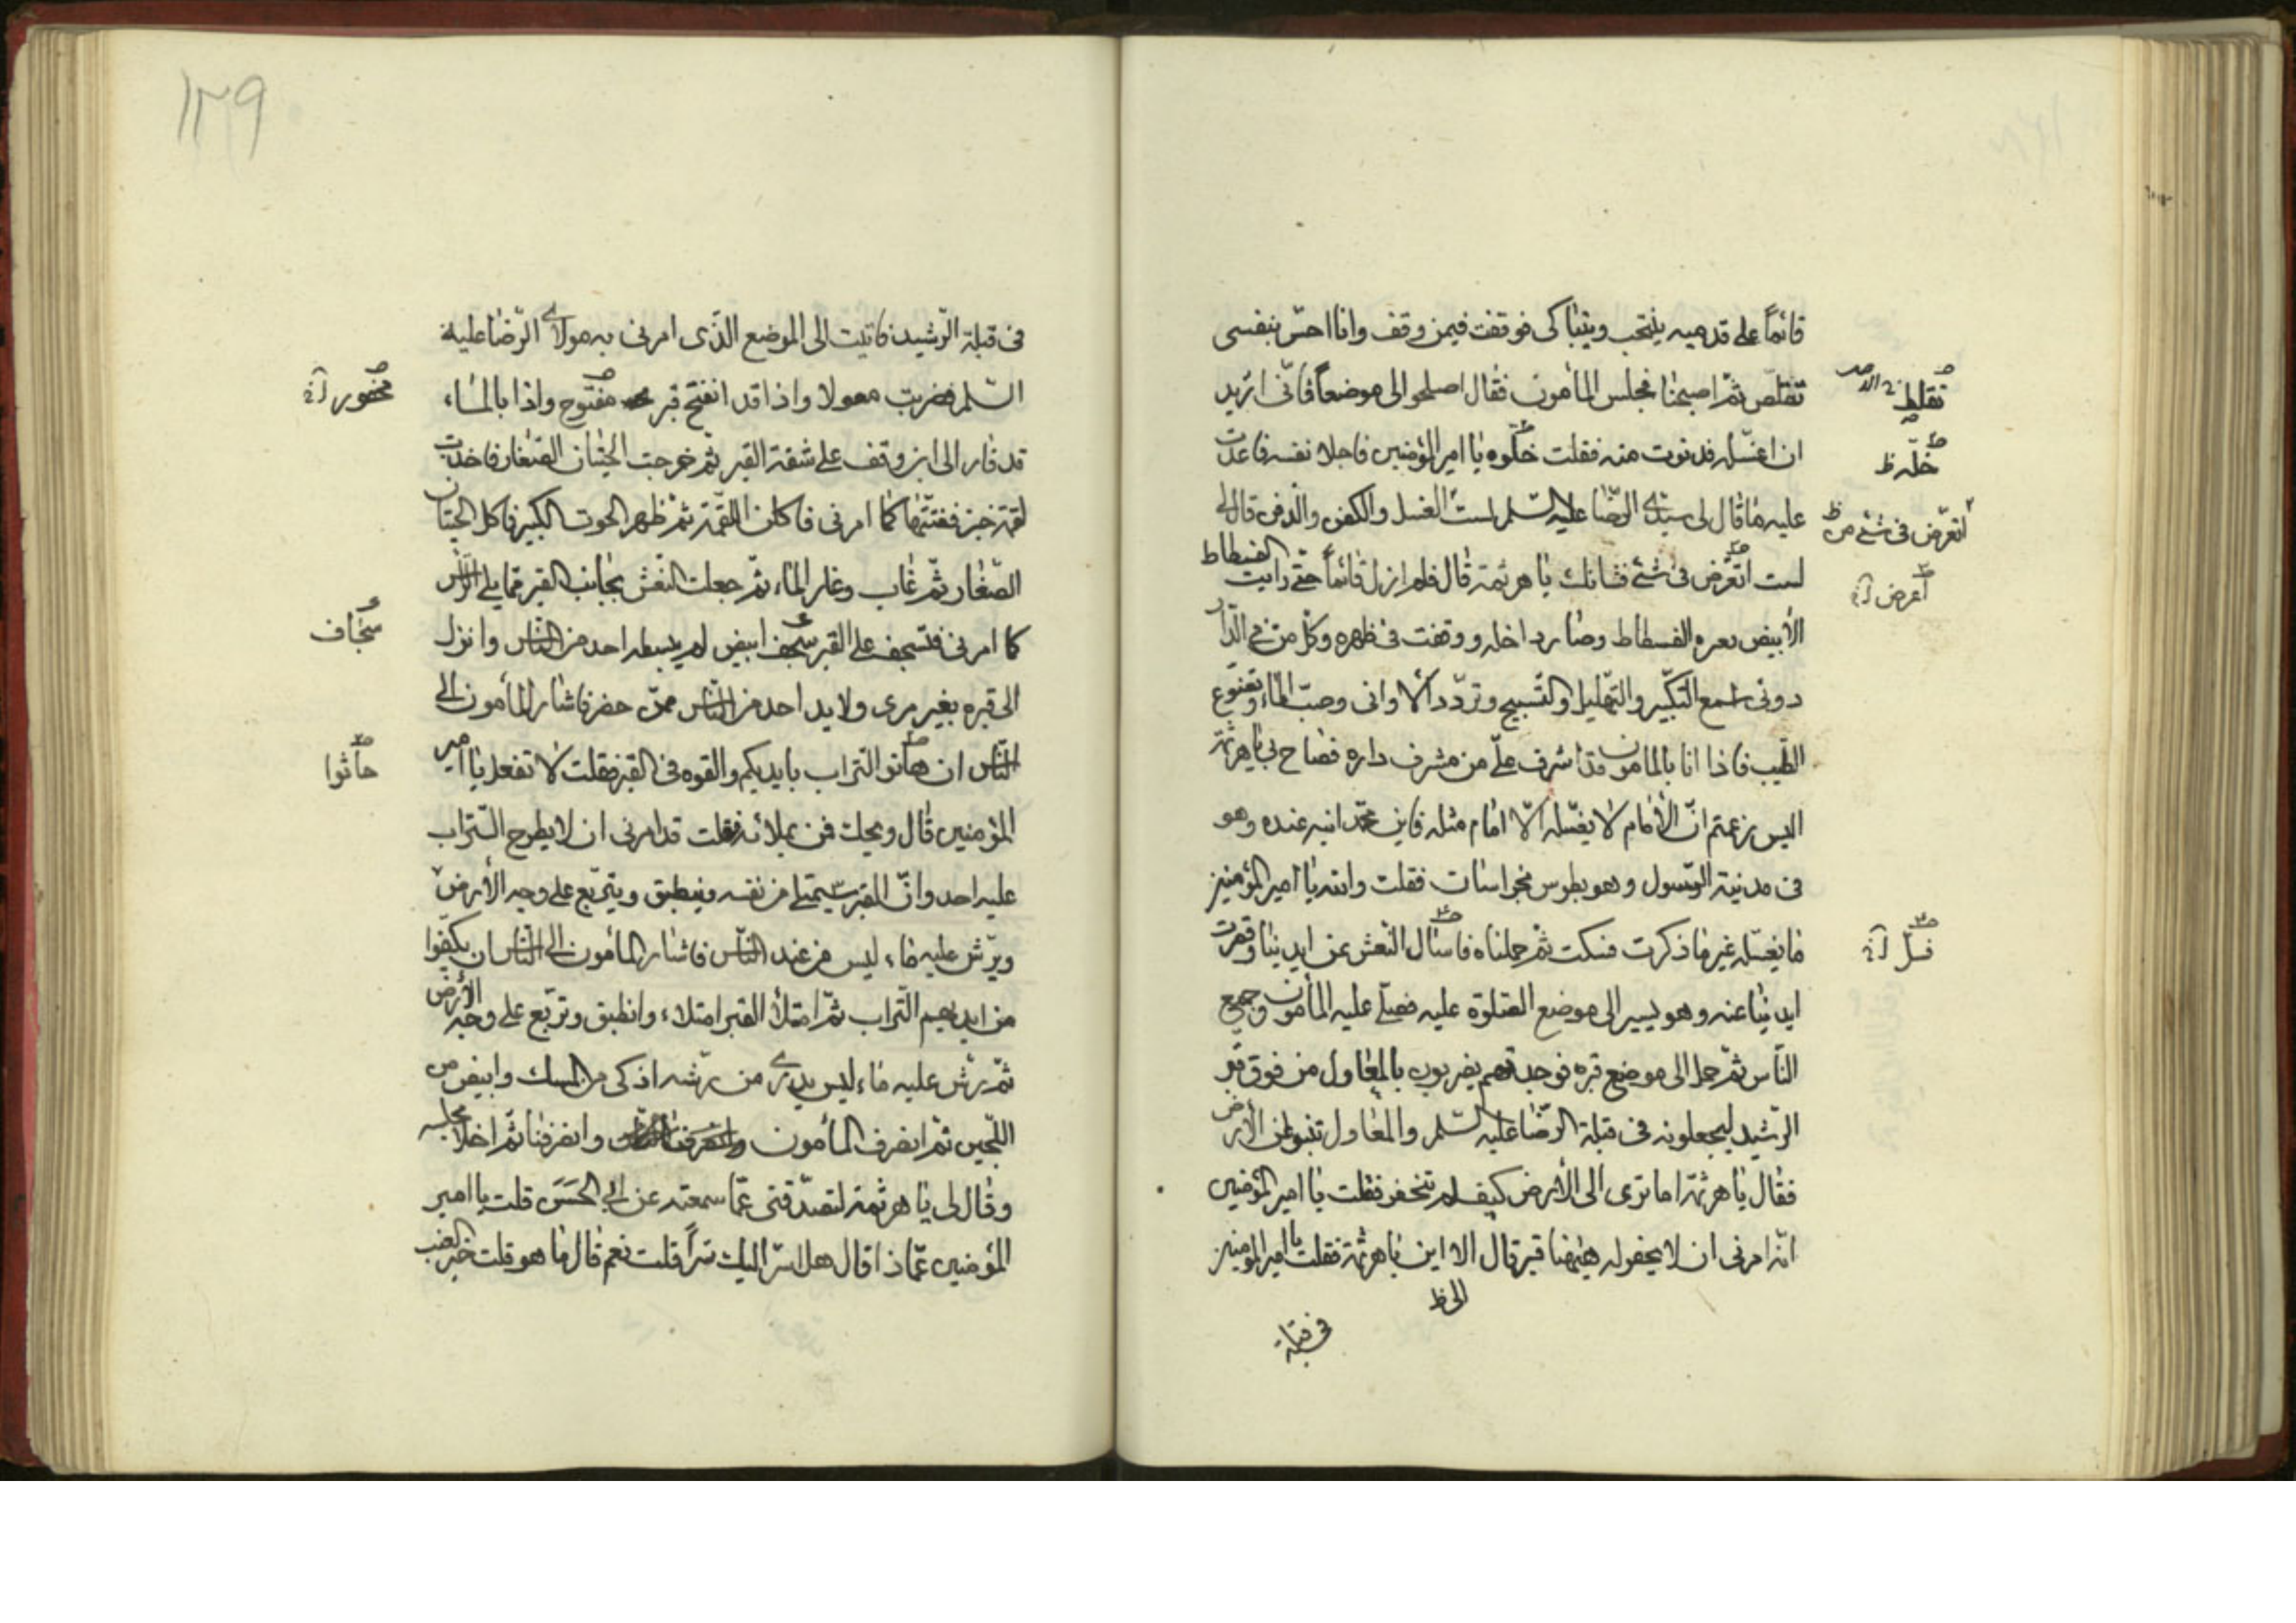 قائماً على قدميه ينتحب ويتباكى فوقفت فيمن وقف وانا احسّ بنفسى
تتقلّص ثمّ اصبحنا فجلس المأمون فقال اصلحوا لى موضعاً فانّى اريد
ان اغسّله فدنوت منه فقلت خلّوه يا امير المؤمنين فاجلا نفسه فاعدت
عليه ما قال لى سيّدى الرّضا عليه السّلم لست الغسل والكفن والدفن قال لى
لست اتعرّض فى شئ فشانك يا هرثمة قال فلم ازل قائماً حتّى رايت الفسطاط
الأبيض فسطاط وصار داخله ووقفت فى ظهره وكل من فى الدّار
دونى اسمع التكبير والتهليل والتسبيح وتردّد الاوانى وصبّ الماء وتضوّع
الطّيب فاذا انا بالمامون قد اشرف علىّ من مشرف داره فصاح بى يا هرثمة
اليس زعمتم انّ الأمام لا يغسّله الّا امام مثله فاين محمّد ابنه عنده وهو
فى مدينة الرّسول وهو بطوس بخراسان فقلت والله يا امير المؤمنين
ما يغسّله غير ما ذكرت فسكت ثمّ حملناه فانسال النّعش من ايدينا وقصرت
ايدينا عنه وهو يسير الى موضع الصّلوة عليه فصلّى عليه المأمون وجميع
النّاس ثمّ جاء الى موضع قبره فوجدتهم يضربون بالمعاول من فوق قبر
الرّشيد ليجعلونه فى قبلة الرّضا عليه السّلم والمعاول تنبو عن الأرض
فقال يا هرثمة اما ترى الى الأرض كيف لم تنحفر فقلت يا امير المؤمنين
انّه امرنى ان لا يحفر له هيهنا قبر قال الا اين يا هرثمة فقلت يا امير المؤمنين
الى ظ
فى قبلة
خلّه ظ
اتعرّض فى شئ من ظ
اعرض
فسل
١٢٩
فى قبلة الرّشيد فاتيت الى الموضع الّذى امرنى به مولاى الرّضا عليه
السّلم فضربت معولا واذا قد انفتح قبر مفتوح واذا بالماء
قد فار الى ان وقف على شفة القبر ثمّ خرجت الحيتان الصّغار فاخذت
لقمة خبز ففتتّها كما امرنى فاكلن اللّقمة ثمّ ظهر الحوت الكبير فاكل الحيتان
الصّغار ثمّ غاب وغار الماء ثمّ جعلت النعش بجانب القبر ممّا يلى الرّأس
كما امرنى فتسجف على القبر سجف ابيض لم يبسطه احد من النّاس وانزل
الى قبره بغير يدى ولا يد احد من النّاس ممّن حضر فاشار المأمون الى
النّاس ان هاتو التّراب بايديكم والقوه فى القبر فقلت لا تفعل يا امير
المؤمنين قال ويحك فمن يملائه فقلت قد امرنى ان لا يطرح التّراب
عليه احد وانّ القبر سيمتلى من نفسه وينطبق ويتربّع على وجه الأرض
ويرّش عليه ماء ليس من عند النّاس فاشار المأمون الى النّاس ان يكفوا
من ايديهم التّراب ثمّ امتلأ القبر امتلاء وانطبق وتربّع على وجه الأرض
ثمّ رش عليه ماء ليس يدرى من رشه اذكى من المسك وابيض من
اللّجين ثمّ انصرف المأمون وانصرفنا ثمّ اخلا مجلسه
وقال لى يا هرثمة لتصدّقنى عمّا سمعته عن ابى الحسن قلت يا امير
المؤمنين عمّا ذا قال هل اسرّ اليك سرّاً قلت نعم قال ما هو قلت خبر العنب
محفور
سجاف
هاتوا